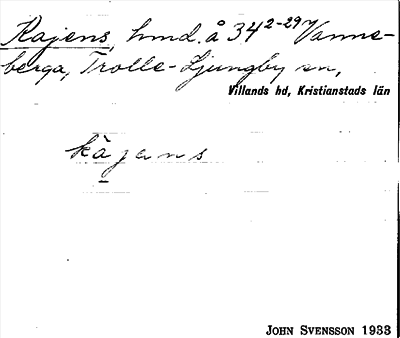 Kajens, hmd. å 34 2-29 Vanne-
berga, Trolle-Ljungby sn,
Villands hd, Kristianstads län
kajans
JOHN SVENSSON 1933